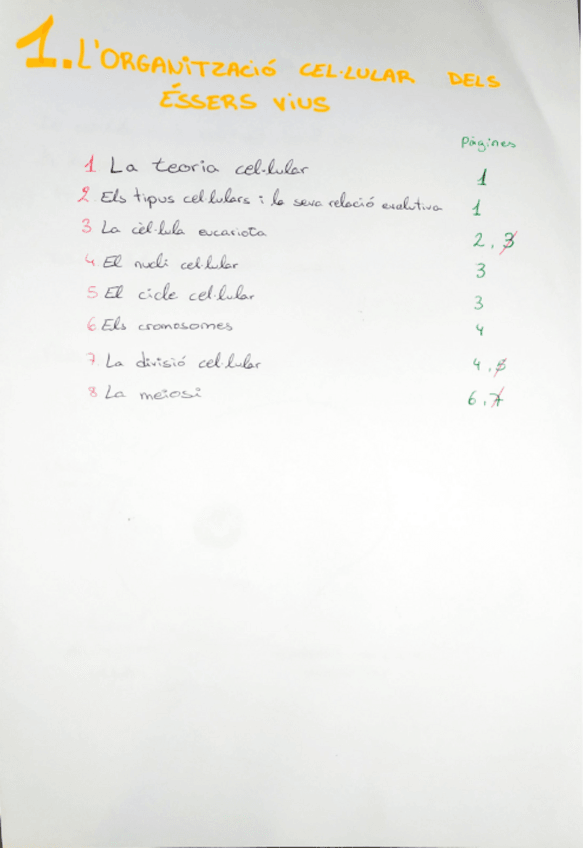 1. L'ORGANITZACIÓ CEL·LULAR DELS
ÉSSERS VIUS
Pàgines
1 La teoria cel·lular 1
2. Els tipus cel·lulars i la seva relació evolutiva 1
3 La cèl·lula eucariota 2, 3
4 El nucli cel·lular 3
5 El cicle cel·lular 3
6 Els cromosomes 4
7. La divisió cel·lular 4, 5
8 La meiosi 6, 7